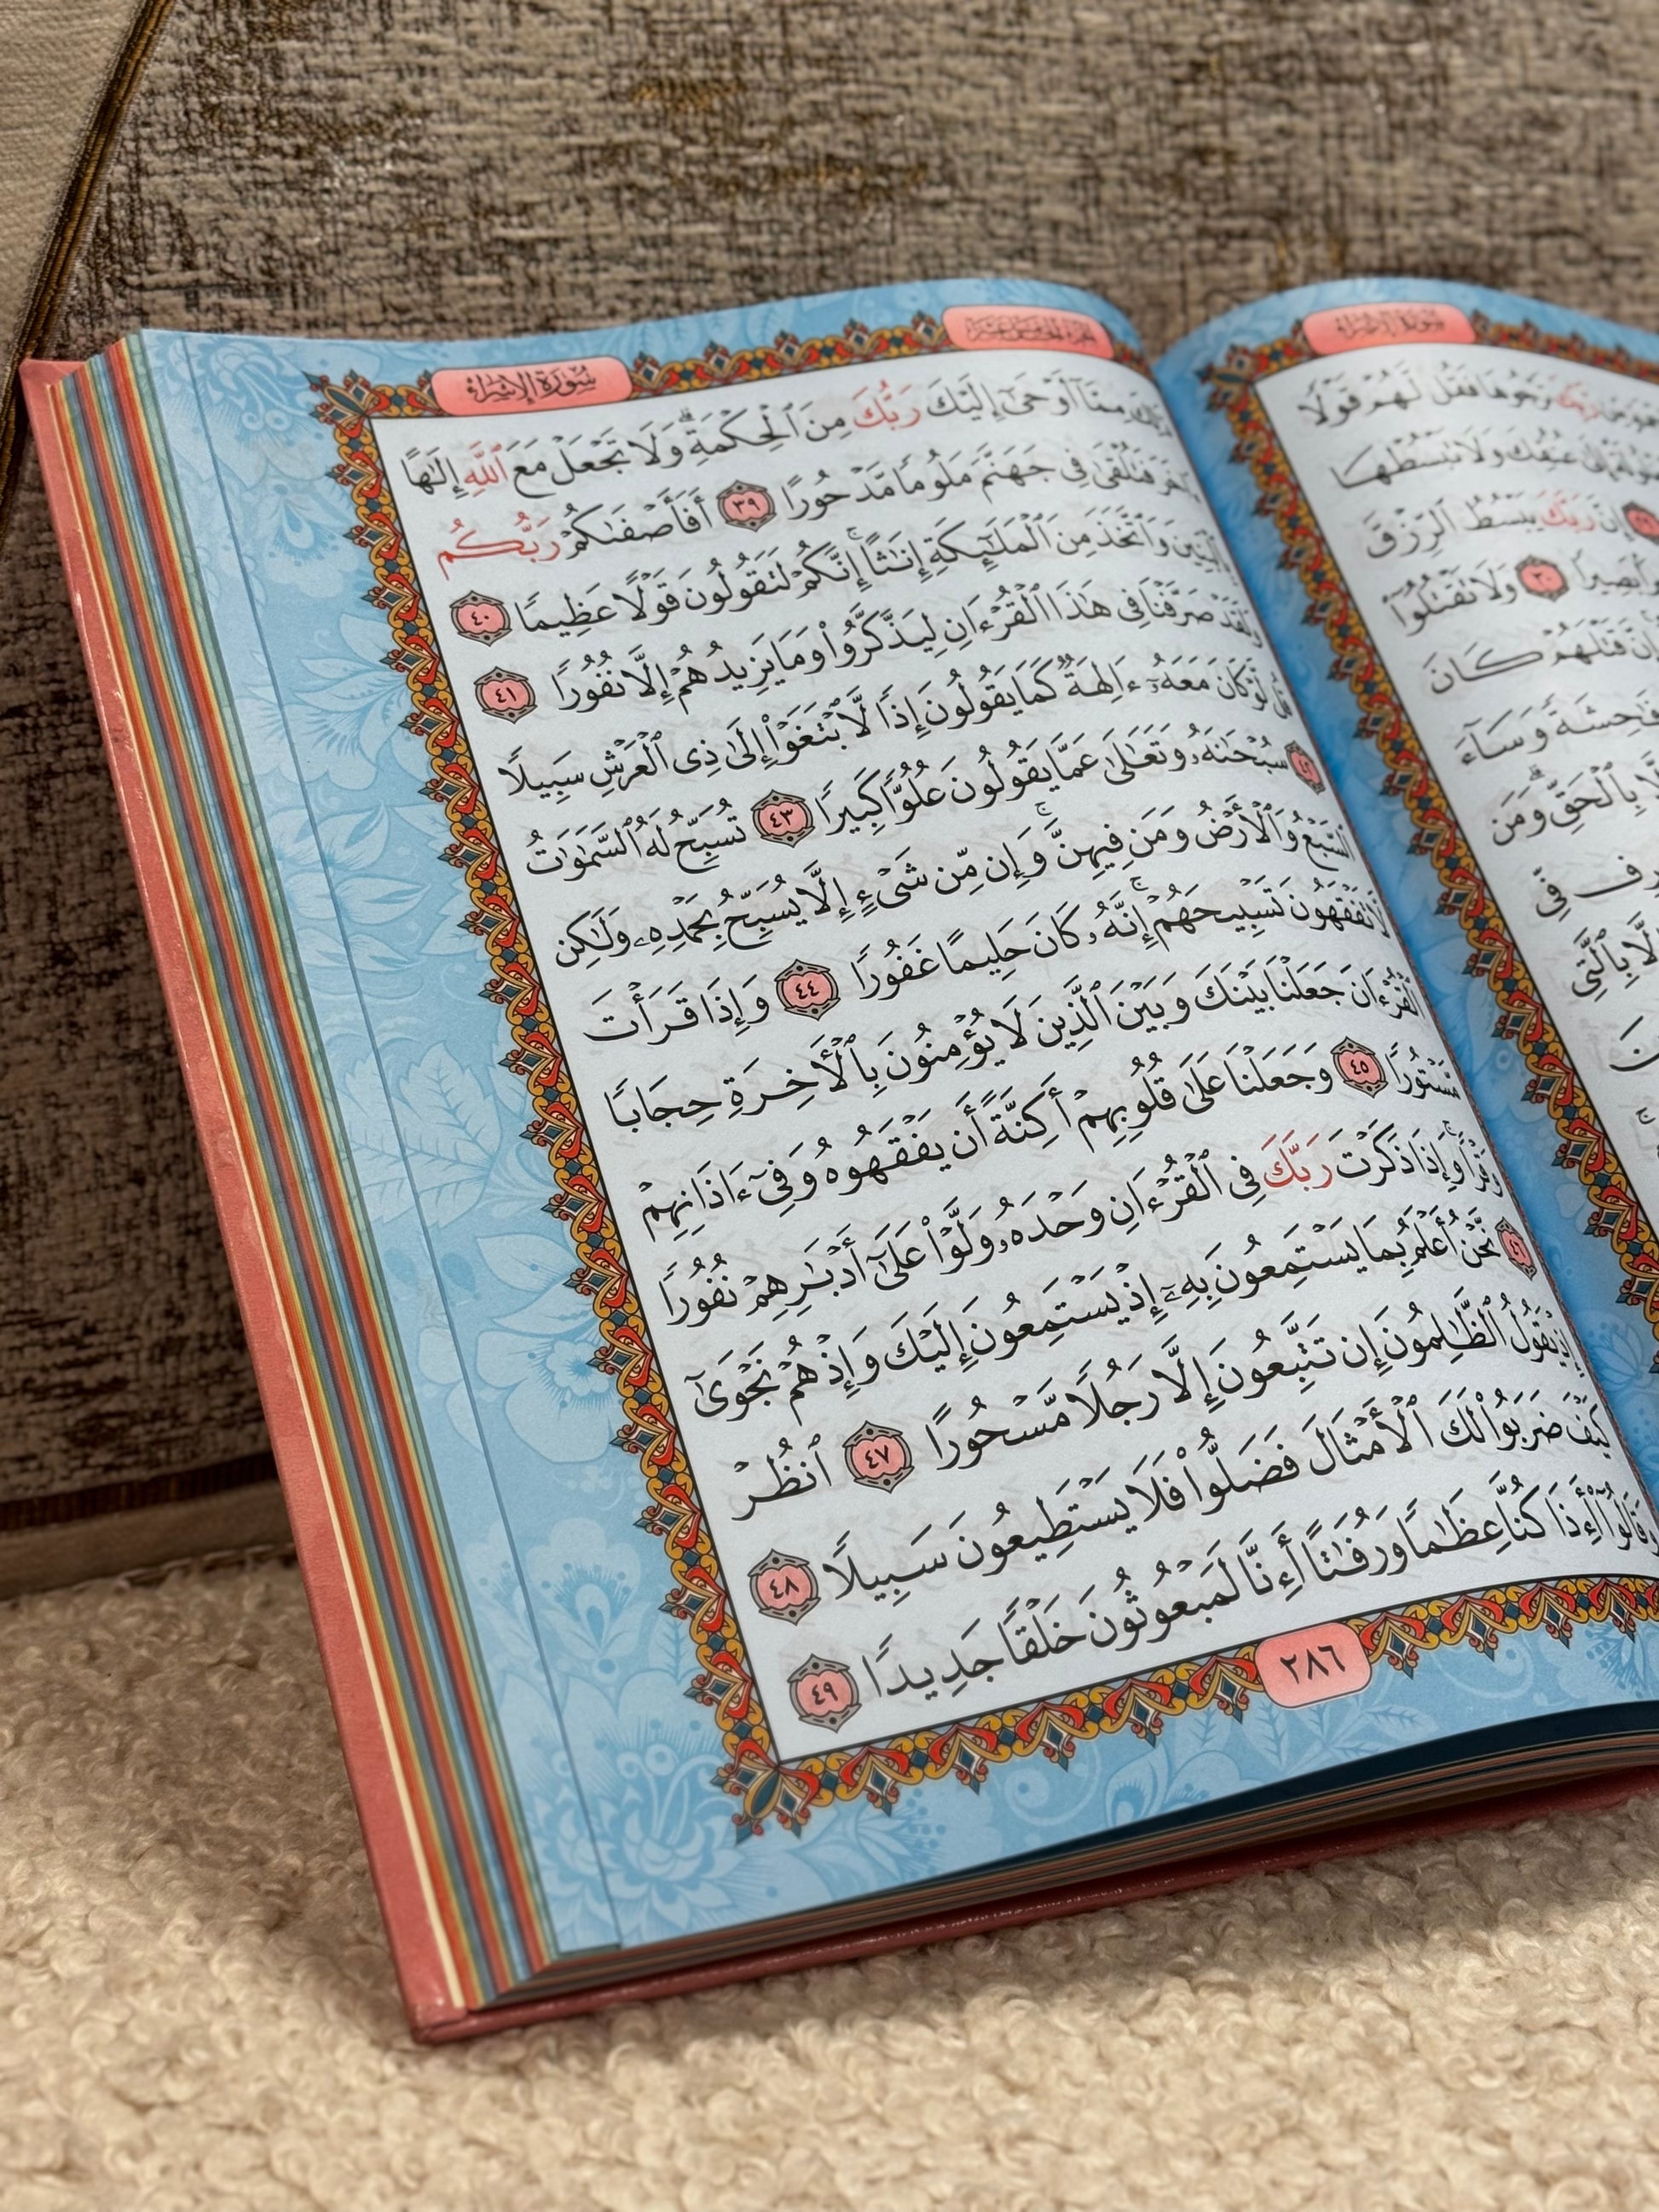 سُورَةُ الإِسْرَاءِ
رَّبِّكَ تَرْجُوهَا فَقُل لَّهُمْ قَوْلًا
إِلَىٰ عُنُقِكَ وَلَا تَبْسُطْهَا
إِنَّ رَبَّكَ يَبْسُطُ ٱلرِّزْقَ
بَصِيرًا ٣٠ وَلَا تَقْتُلُوٓا۟
إِنَّ قَتْلَهُمْ كَانَ
فَٰحِشَةً وَسَآءَ
بِٱلْحَقِّ ۗ وَمَن
فِّى
إِلَّا بِٱلَّتِى
الجزء الخامس عشر
سُورَةُ الإِسْرَاءِ
ذَٰلِكَ مِمَّآ أَوْحَىٰٓ إِلَيْكَ رَبُّكَ مِنَ ٱلْحِكْمَةِ ۗ وَلَا تَجْعَلْ مَعَ ٱللَّهِ إِلَٰهًا
ءَاخَرَ فَتُلْقَىٰ فِى جَهَنَّمَ مَلُومًا مَّدْحُورًا ٣٩ أَفَأَصْفَىٰكُمْ رَبُّكُم
بِٱلْبَنِينَ وَٱتَّخَذَ مِنَ ٱلْمَلَٰٓئِكَةِ إِنَٰثًا ۚ إِنَّكُمْ لَتَقُولُونَ قَوْلًا عَظِيمًا ٤٠
وَلَقَدْ صَرَّفْنَا فِى هَٰذَا ٱلْقُرْءَانِ لِيَذَّكَّرُوا۟ وَمَا يَزِيدُهُمْ إِلَّا نُفُورًا ٤١
قُل لَّوْ كَانَ مَعَهُۥٓ ءَالِهَةٌ كَمَا يَقُولُونَ إِذًا لَّٱبْتَغَوْا۟ إِلَىٰ ذِى ٱلْعَرْشِ سَبِيلًا
٤٢ سُبْحَٰنَهُۥ وَتَعَٰلَىٰ عَمَّا يَقُولُونَ عُلُوًّا كَبِيرًا ٤٣ تُسَبِّحُ لَهُ ٱلسَّمَٰوَٰتُ
ٱلسَّبْعُ وَٱلْأَرْضُ وَمَن فِيهِنَّ ۚ وَإِن مِّن شَىْءٍ إِلَّا يُسَبِّحُ بِحَمْدِهِۦ وَلَٰكِن
لَّا تَفْقَهُونَ تَسْبِيحَهُمْ ۗ إِنَّهُۥ كَانَ حَلِيمًا غَفُورًا ٤٤ وَإِذَا قَرَأْتَ
ٱلْقُرْءَانَ جَعَلْنَا بَيْنَكَ وَبَيْنَ ٱلَّذِينَ لَا يُؤْمِنُونَ بِٱلْأَخِرَةِ حِجَابًا
مَّسْتُورًا ٤٥ وَجَعَلْنَا عَلَىٰ قُلُوبِهِمْ أَكِنَّةً أَن يَفْقَهُوهُ وَفِىٓ ءَاذَانِهِمْ
وَقْرًا ۚ وَإِذَا ذَكَرْتَ رَبَّكَ فِى ٱلْقُرْءَانِ وَحْدَهُۥ وَلَّوْا۟ عَلَىٰٓ أَدْبَٰرِهِمْ نُفُورًا
٤٦ نَّحْنُ أَعْلَمُ بِمَا يَسْتَمِعُونَ بِهِۦٓ إِذْ يَسْتَمِعُونَ إِلَيْكَ وَإِذْ هُمْ نَجْوَىٰٓ
إِذْ يَقُولُ ٱلظَّٰلِمُونَ إِن تَتَّبِعُونَ إِلَّا رَجُلًا مَّسْحُورًا ٤٧ ٱنظُرْ
كَيْفَ ضَرَبُوا۟ لَكَ ٱلْأَمْثَالَ فَضَلُّوا۟ فَلَا يَسْتَطِيعُونَ سَبِيلًا ٤٨
وَقَالُوٓا۟ أَءِذَا كُنَّا عِظَٰمًا وَرُفَٰتًا أَءِنَّا لَمَبْعُوثُونَ خَلْقًا جَدِيدًا ٤٩
٢٨٦